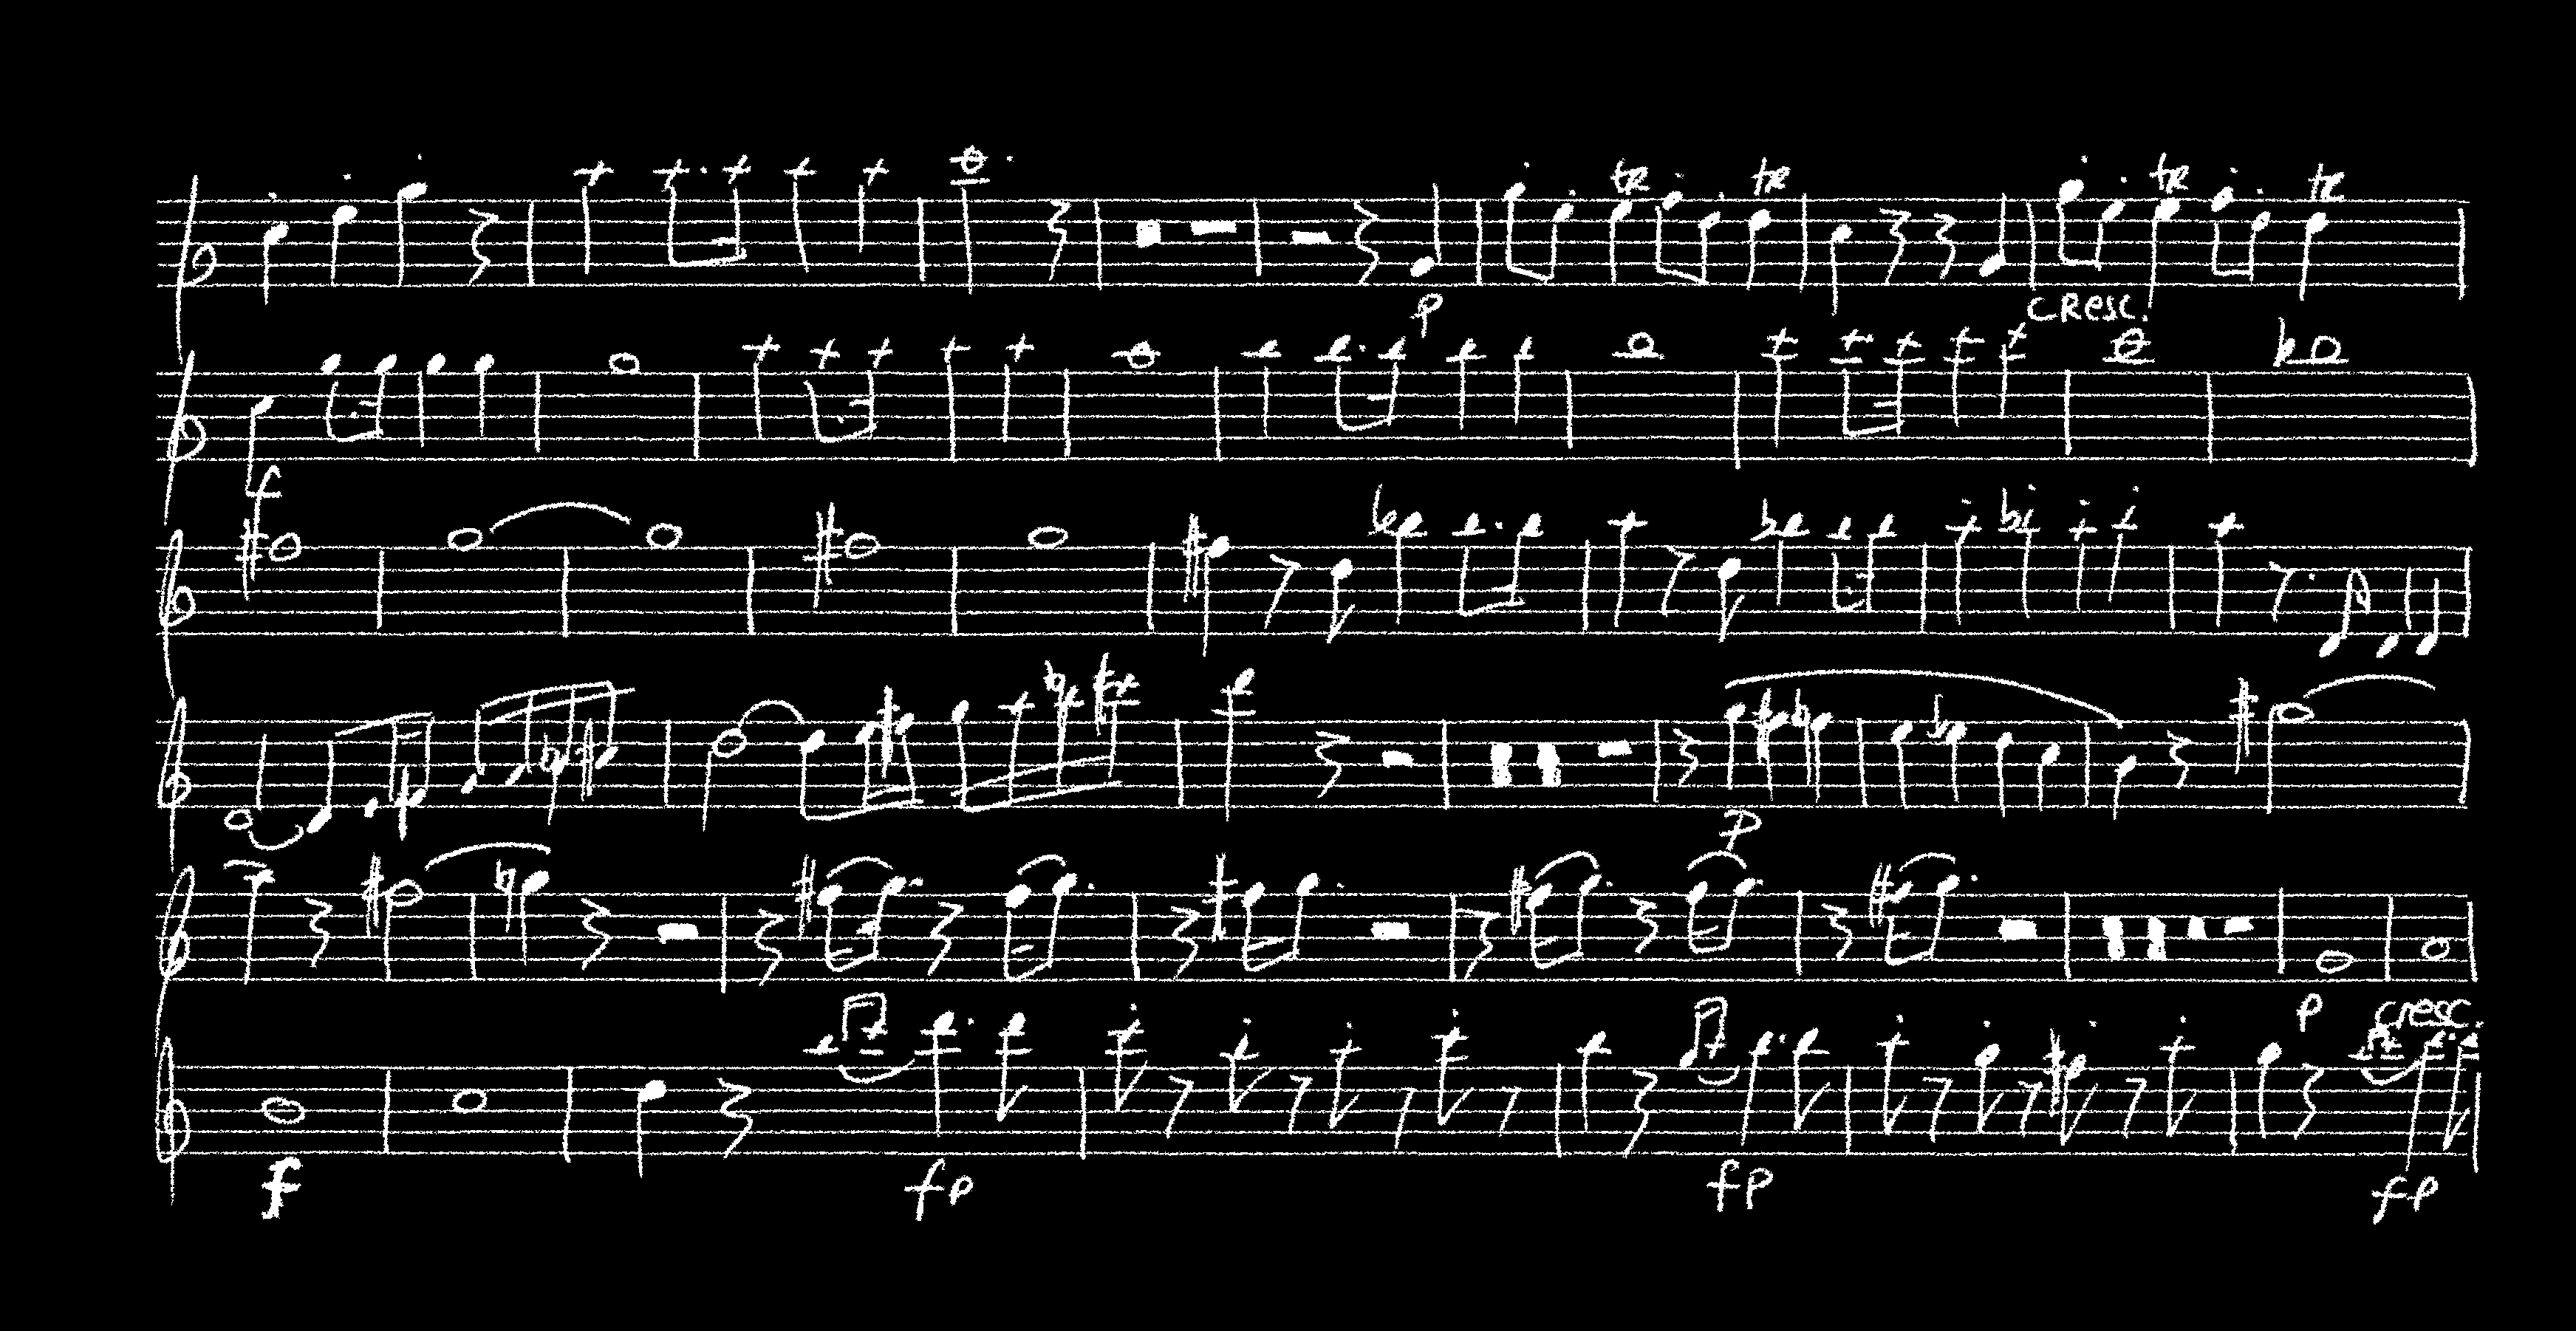 tR tR tR tR
p cResc.
f
p
p cresc.
f fp fp fp